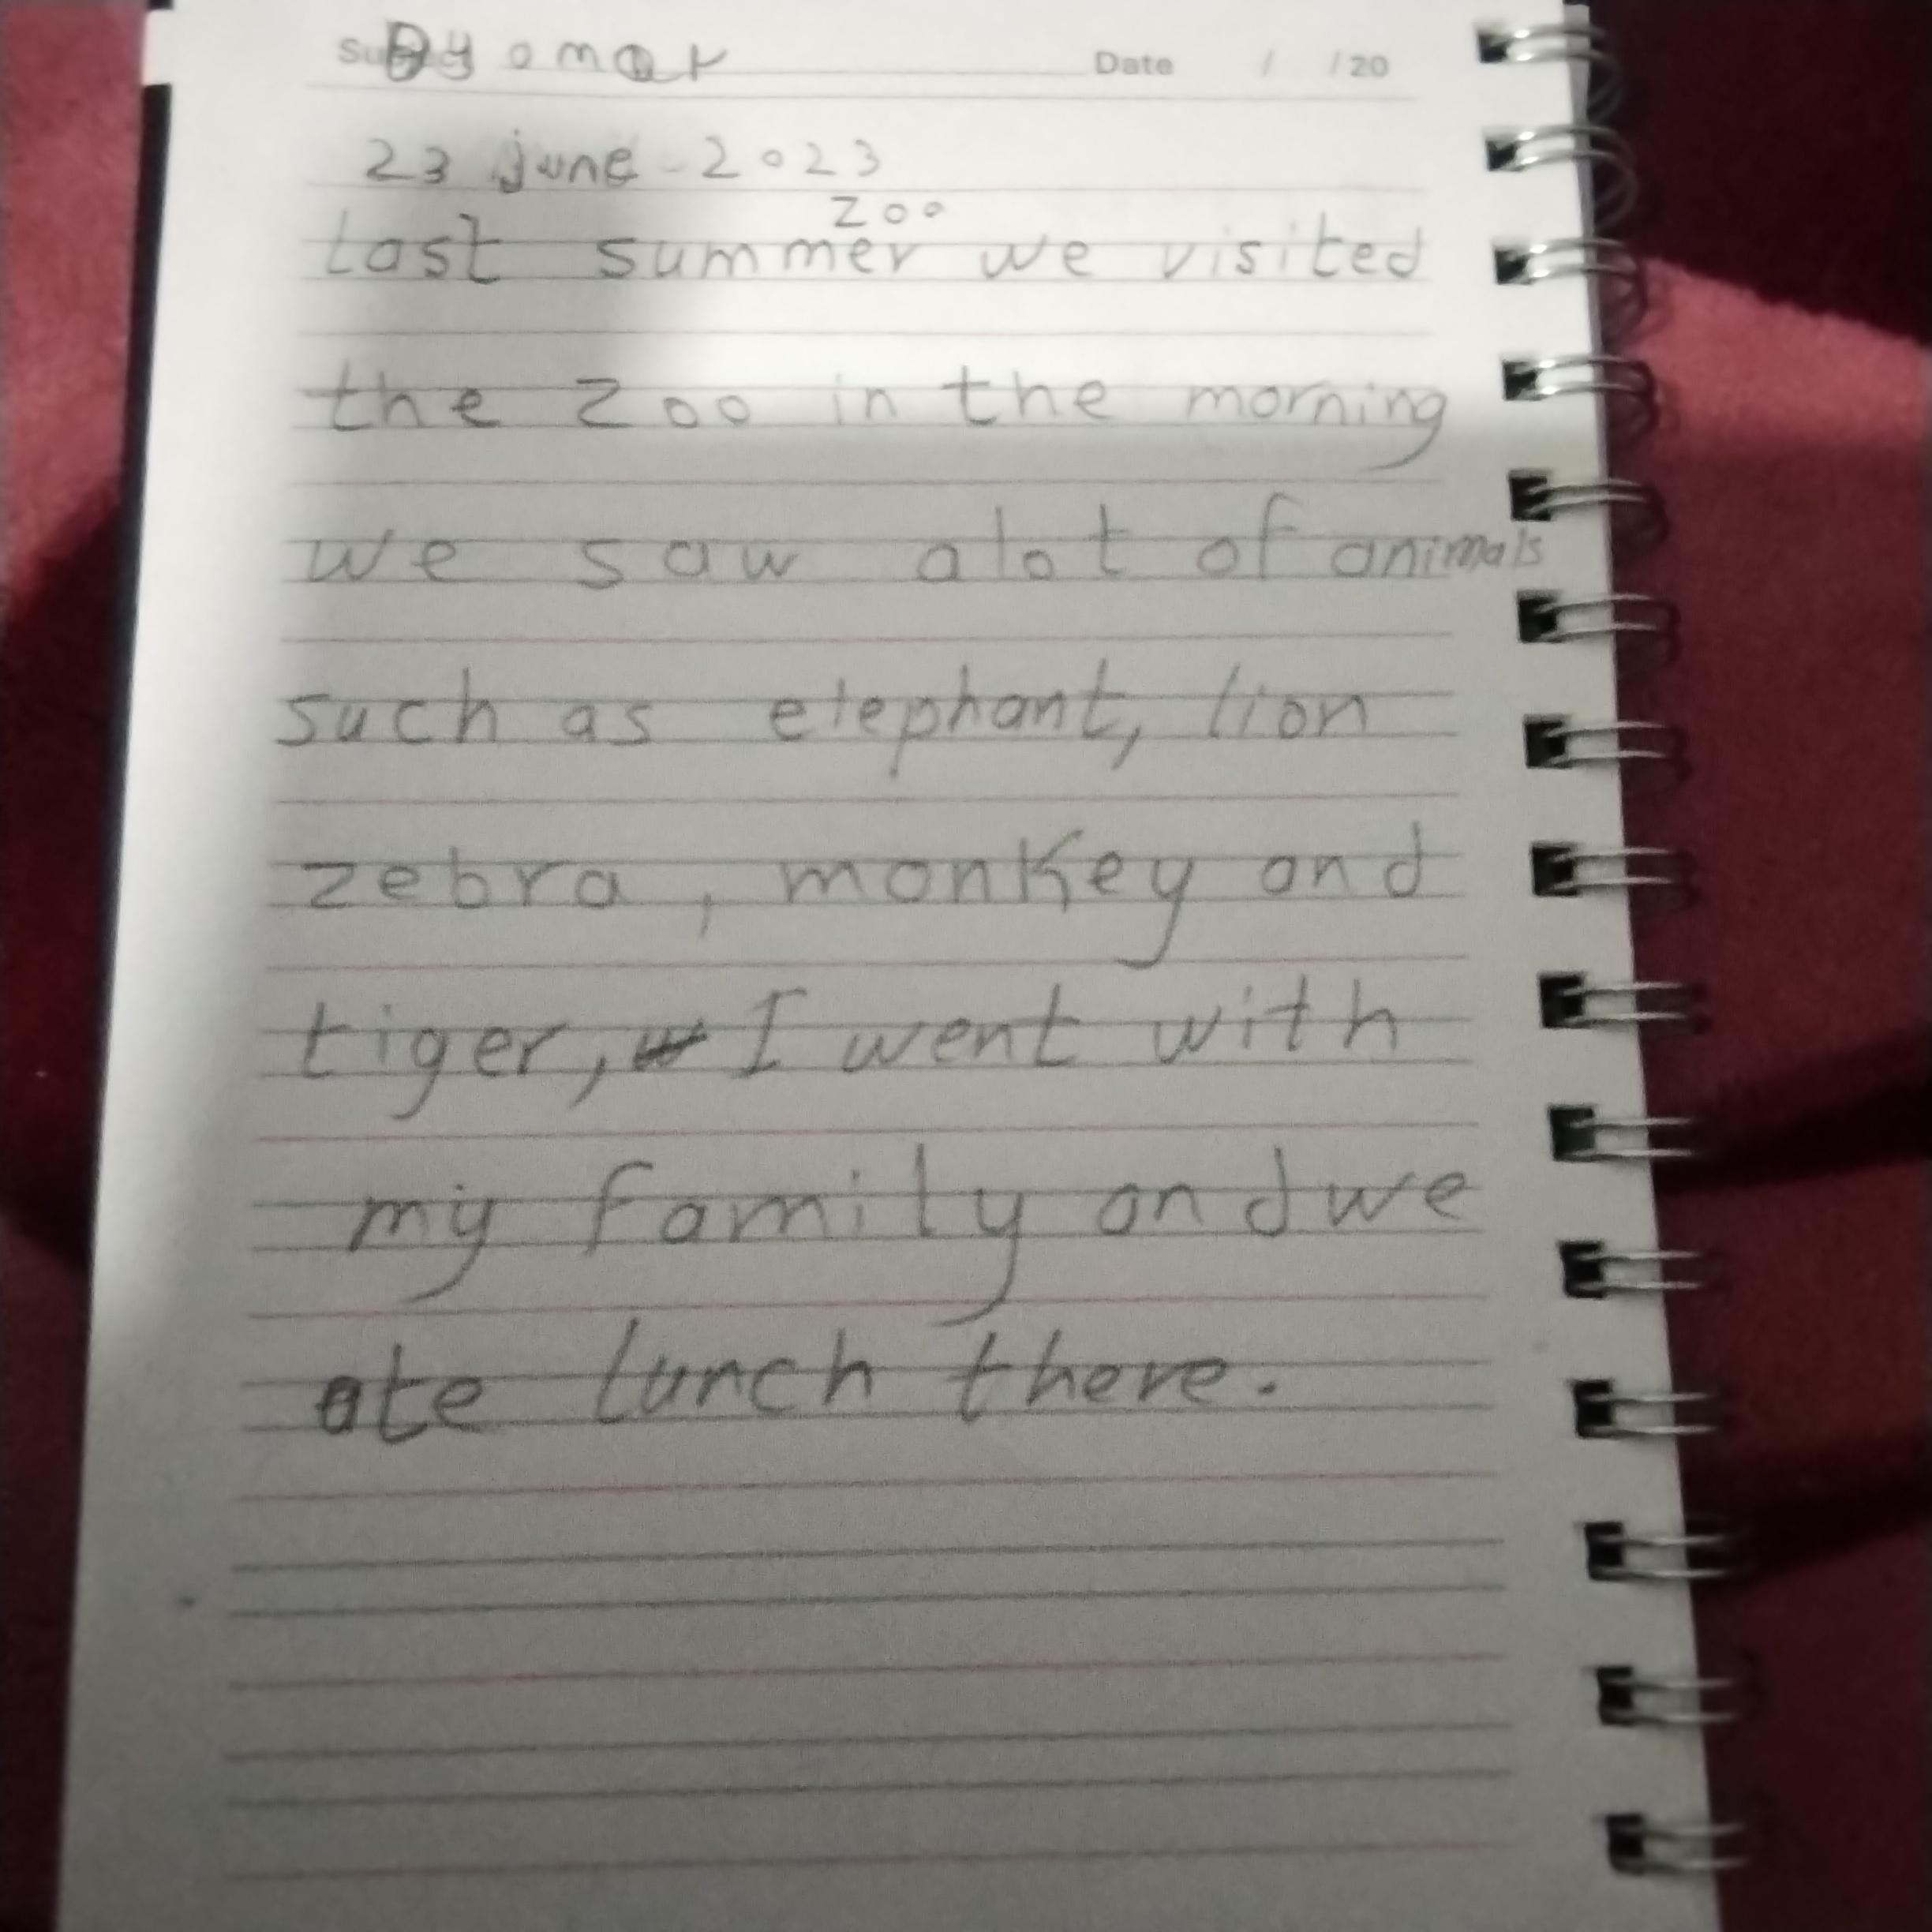 By omar
Date / / 20
23 june - 2023
zoo
last summer we visited
the zoo in the morning
we saw alot of animals
such as elephant, lion
zebra , monkey and
tiger, I went with
my family and we
ate lunch there.